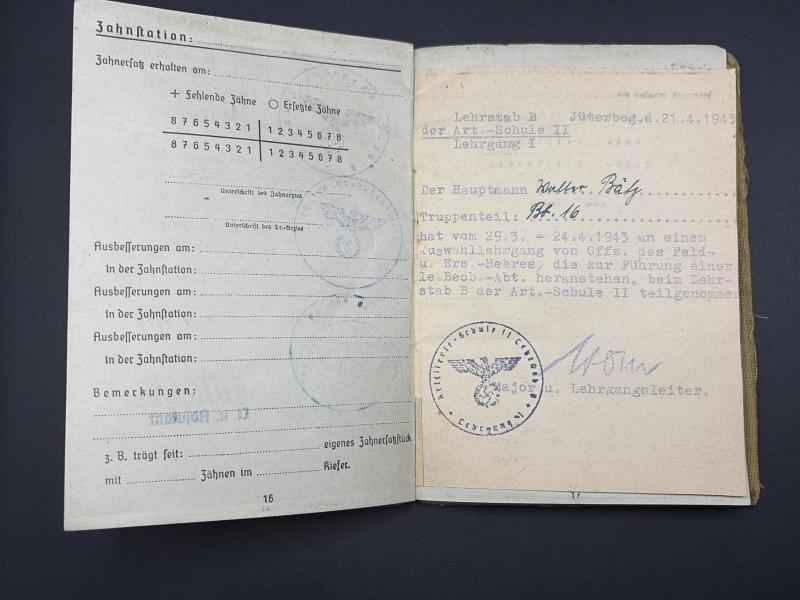 Zahnstation:
Zahnersatz erhalten am:
+ Fehlende Zähne ○ Ersetzte Zähne
8 7 6 5 4 3 2 1 | 1 2 3 4 5 6 7 8
8 7 6 5 4 3 2 1 | 1 2 3 4 5 6 7 8
Unterschrift des Zahnarztes
Unterschrift des Tr.-Arztes
Ausbesserungen am:
in der Zahnstation:
Ausbesserungen am:
in der Zahnstation:
Ausbesserungen am:
in der Zahnstation:
Bemerkungen:
z. B. trägt seit: eigenes Zahnersatzstück
mit Zähnen im Kiefer.
16
Lehrstab B Jüterbog,d.21.4.1943
der Art.-Schule II
Lehrgang I
Der Hauptmann Walter Bätz
Truppenteil: Bb. 16
hat vom 29.3. - 24.4.1943 an einem
Auswahllehrgang von Offz. des Feld-
u. Ers.-Heeres, die zur Führung einer
le.Beob.-Abt. heranstehen, beim Lehr-
stab B der Art.-Schule II teilgenommen
Major u. Lehrgangsleiter.
Artillerie-Schule II Lehrstab B
Lehrgang I
17